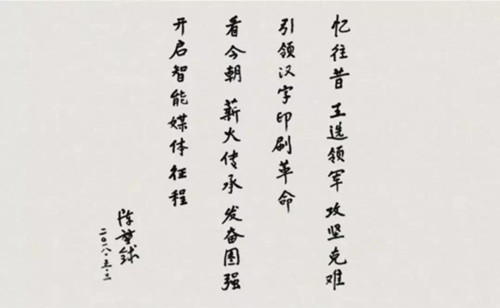 忆往昔 王选领军 攻坚克难
引领汉字印刷革命
看今朝 薪火传承 发奋图强
开启智能媒体征程
陈堃銶
二〇一八·五·二